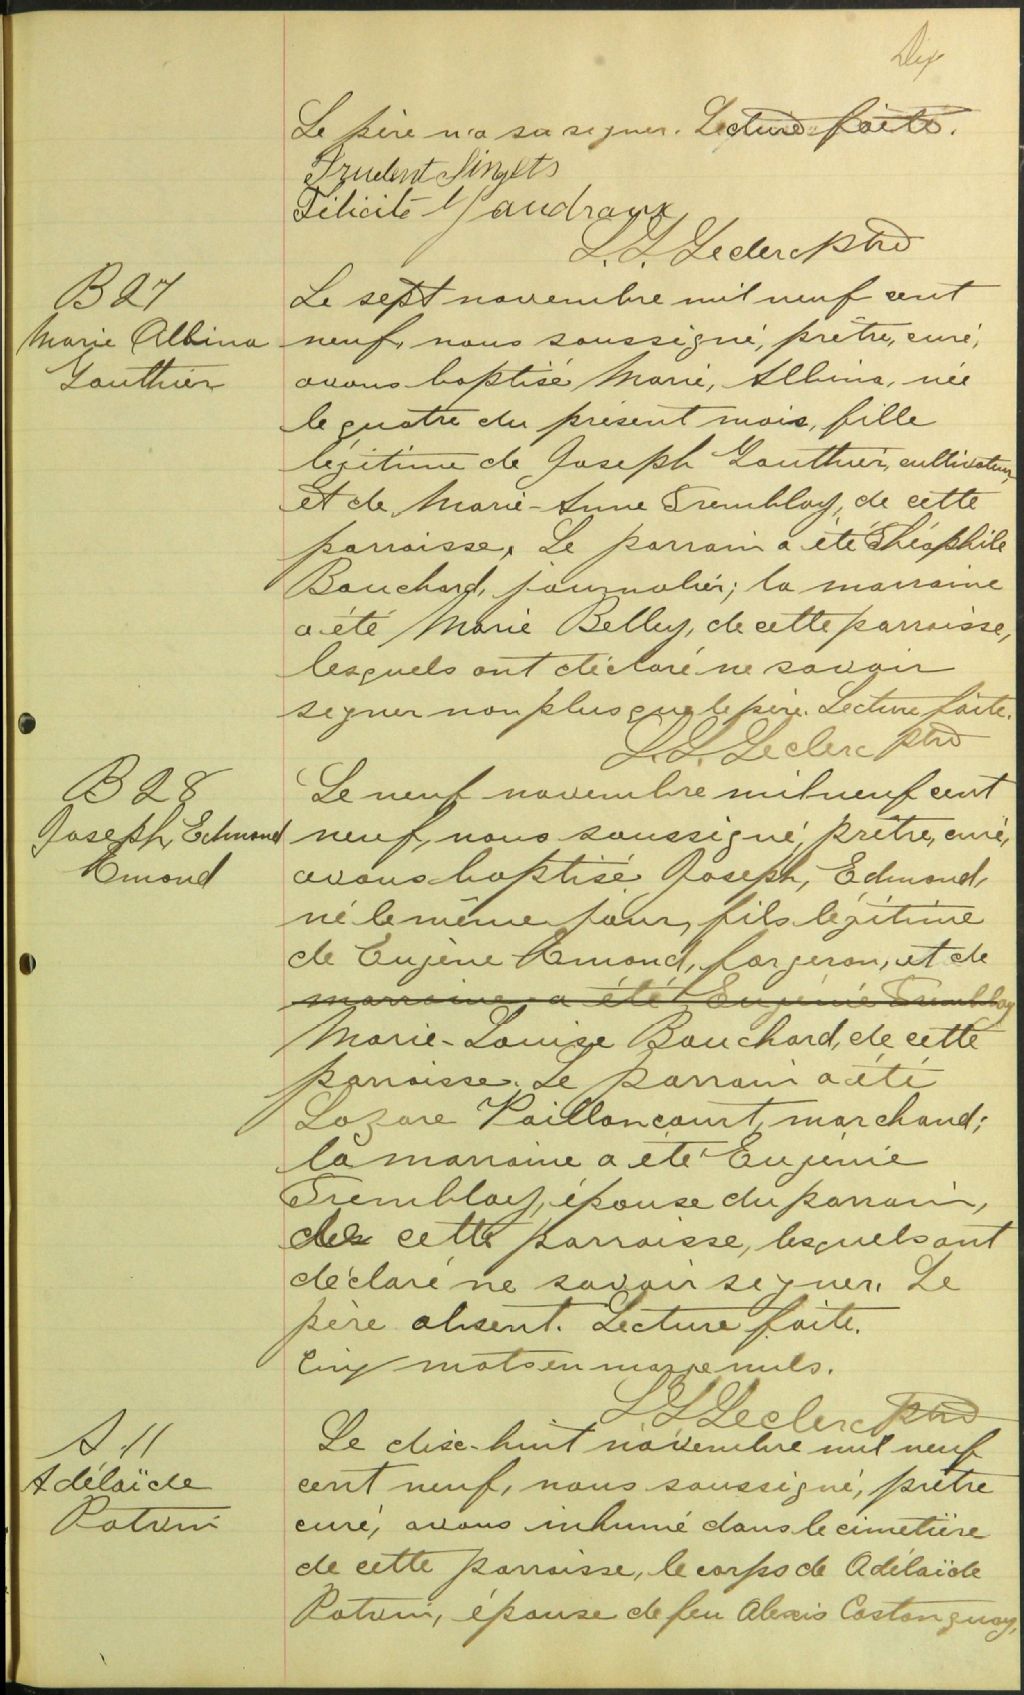 Dix
Le père n'a su signer. Lecture faite.
Prudent Singets
Félicité Gaudraux
L. L. Leclerc ptre
B 27
Marie Albina
Gauthier
Le sept novembre mil neuf cent
neuf, nous soussigné, prêtre, curé,
avons baptisé Marie, Albina, née
le quatre du présent mois, fille
légitime de Joseph Gauthier, cultivateur,
et de Marie-Anne Tremblay, de cette
parroisse. Le parrain a été Théophile
Bouchard, journalier; la marraine
a été Marie Belley, de cette parroisse,
lesquels ont déclaré ne savoir
signer non plus que le père. Lecture faite.
L. L. Leclerc ptre
B 28
Joseph, Edmond
Emond
Le neuf novembre mil neuf cent
neuf, nous soussigné, prêtre, curé,
avons baptisé Joseph, Edmond,
né le même jour, fils légitime
de Eugène Emond, forgeron, et de
marraine a été Eugénie Tremblay
Marie-Louise Bouchard, de cette
parroisse. Le parrain a été
Lazare Vaillancourt, marchand;
la marraine a été Eugénie
Tremblay, épouse du parrain,
de cette parroisse, lesquels ont
déclaré ne savoir signer. Le
père absent. Lecture faite.
Cinq mots en marge nuls.
L L Leclerc ptre
S. 11
Adélaïde
Potvin
Le dix-huit novembre mil neuf
cent neuf, nous soussigné, prêtre
curé, avons inhumé dans le cimetière
de cette parroisse, le corps de Adélaïde
Potvin, épouse de feu Alexis Castonguay,